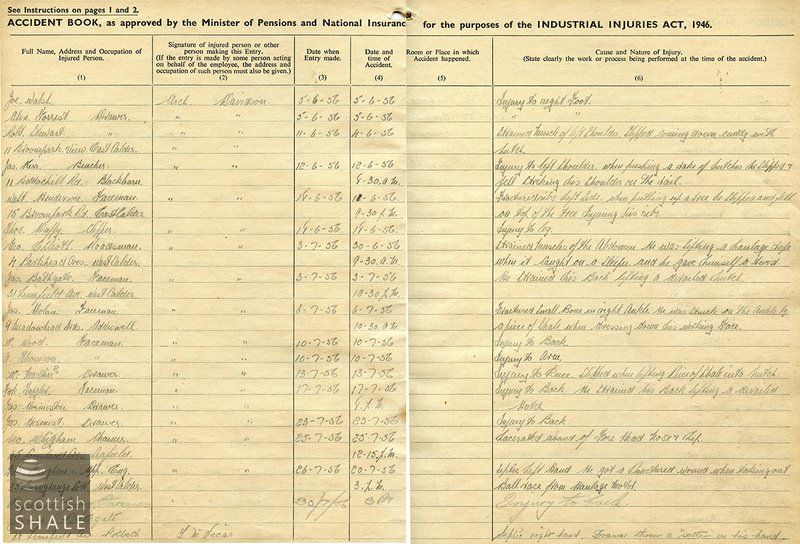 See Instructions on pages 1 and 2.
ACCIDENT BOOK, as approved by the Minister of Pensions and National Insurance for the purposes of the INDUSTRIAL INJURIES ACT, 1946.
Full Name, Address and Occupation of Injured Person.
(1)
Signature of injured person or other person making this Entry.
(If the entry is made by some person acting on behalf of the employee, the address and occupation of such person must also be given.)
(2)
Date when Entry made.
(3)
Date and time of Accident.
(4)
Room or Place in which Accident happened.
(5)
Cause and Nature of Injury.
(State clearly the work or process being performed at the time of the accident.)
(6)
Joe. Walsh. Arch. Davidson 5-6-56 5-6-56 Injury to right Foot.
Alex. Forrest Drawer. " " 5-6-56 5-6-56 " "
Robt. Stewart " " " 11-6-56 4-6-56 Strained Muscle of left Shoulder. Slipped coming down cuddy with
11 Broompark View East Calder. hutch.
Jas. Kerr. Brusher. " " 12-6-56 12-6-56 Injury to left Shoulder. when pushing a rake of hutches he Slipped &
Rd. Blackburn. 9-30. a.m. fell Striking his Shoulder on the rail.
Walt. Henderson Faceman. " " 18-6-56 12-6-56 Fractured ribs left Side. when putting up a tree he Slipped and fell
15 Broompark Rd. East Calder. 9-30 p.m. on top of the tree Injuring his ribs.
Thos. Duffy. " " 18-6-56 18-6-56 Injury to leg.
Geo. Elliott. Roadsman. " " 3-7-56 30-6-56 Strained Muscles of the Abdomen He was lifting a haulage rope
4 Parkhead Cres. West Calder. 9-30. a.m. when it caught on a Sleeper, and he gave himself a twist
Jas. Bathgate Faceman. " " 3-7-56 3-7-56 He Strained his Back lifting a derailed hutch.
31 Limefield Ave. West Calder. 12-30 p.m.
Jas. Nolan. Faceman " " 6-7-56 6-7-56 Fractured Small Bone in right Ankle He was Struck on The Ankle by
9 Meadowhead Addiewell 10-30. a.m. a piece of Shale when dressing down his working Face.
W. Wood. Faceman. " " 10-7-56 10-7-56 Injury to Back
A. Thomson. " " " 10-7-56 10-7-56 Injury to Arm.
Drawer. " " 13-7-56 13-7-56 Injury to Knee Slipped when lifting Piece of Shale into hutch.
Faceman. " " 17-7-56 17-7-56 Injury to Back He Strained his Back lifting a derailed
Jas. Drawer. " " Hutch
Jas. Drawer. " " 23-7-56 23-7-56 Injury to Back
Geo. Whigham " " 25-7-56 25-7-56 Lacerated wound of Fore Head Nose & Lip.
12-15. p.m.
App. Eng. " " 26-7-56 20-7-56 Septic left Hand. He got a Punctured wound when taking out
West Calder. 3. p.m. Ball race from Haulage Motor.
Faceman Injury to back
Septic right hand. Drawer threw a on his hand
scottish
SHALE